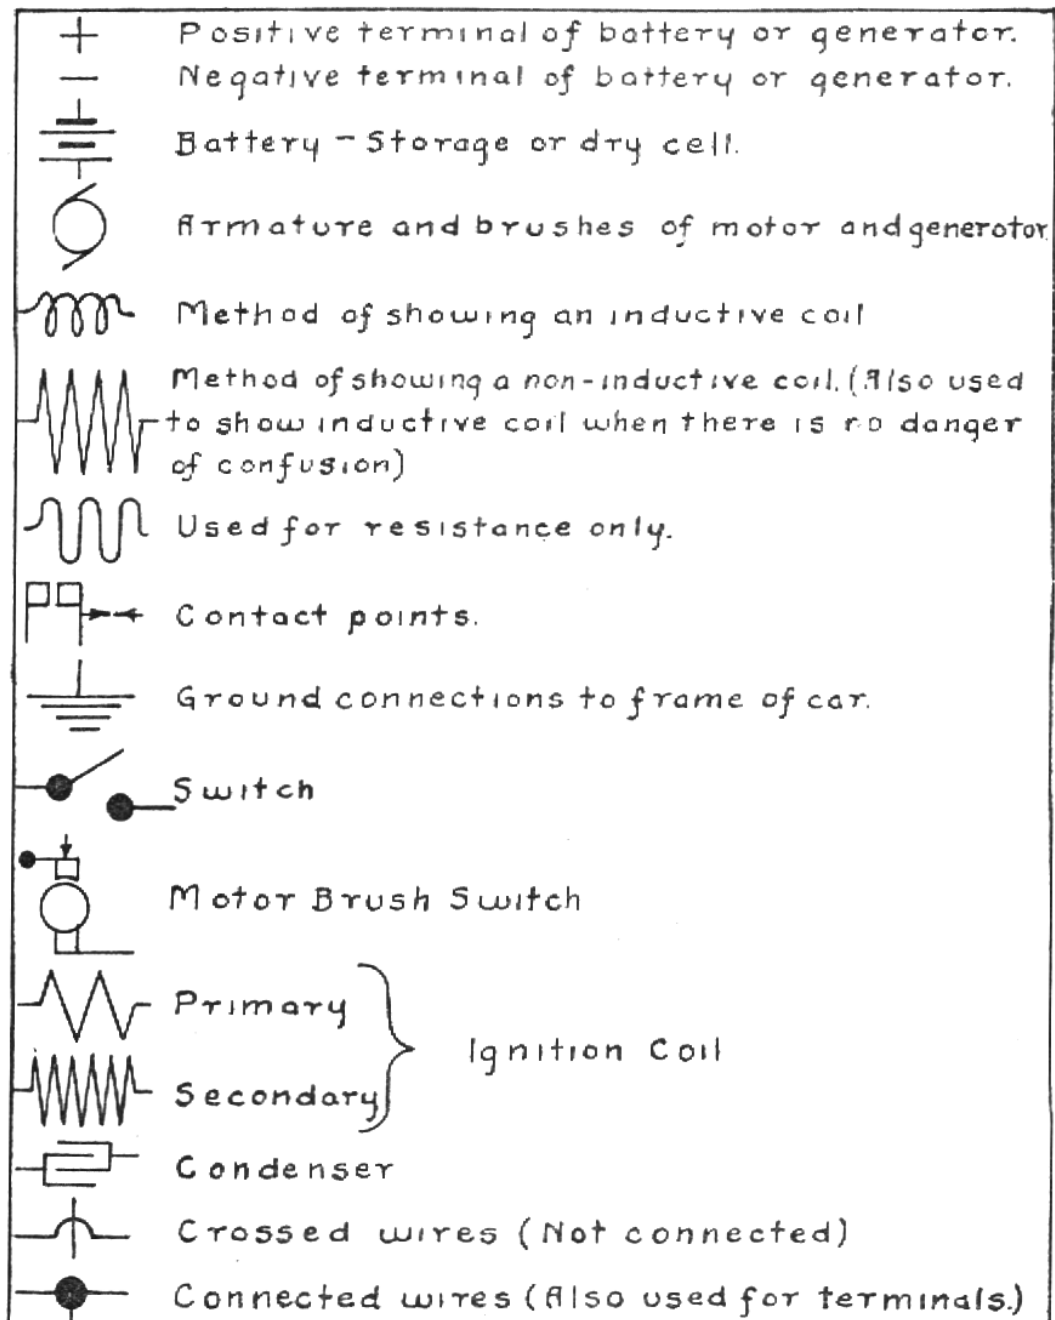 + Positive terminal of battery or generator.
− Negative terminal of battery or generator.
Battery - Storage or dry cell.
Armature and brushes of motor and generotor
Method of showing an inductive coil
Method of showing a non-inductive coil. (Also used
to show inductive coil when there is no danger
of confusion)
Used for resistance only.
Contact points.
Ground connections to frame of car.
Switch
Motor Brush Switch
Primary
Ignition Coil
Secondary
Condenser
Crossed wires (Not connected)
Connected wires (Also used for terminals.)